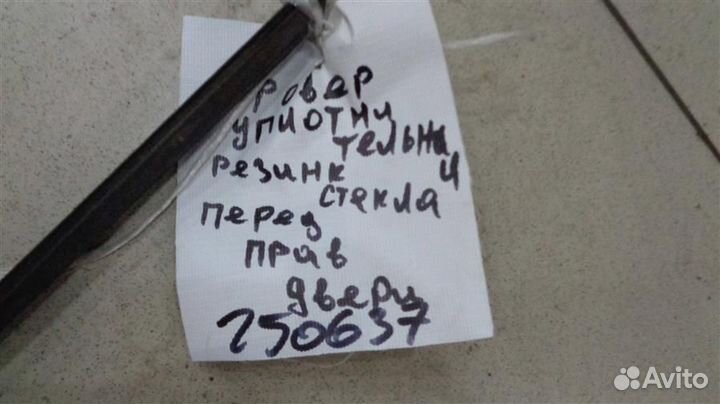 ровер
упиотни
тельни
резинк и
стекла
перед
прав
двери
250637
Avito